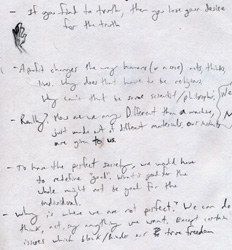 - If you find the truth, then you lose your desire
for the truth
- A prophet changes the way humans (or a race) only thinks,
lives. Why does that have to be religious
Why can't that be some scientist/philosopher
- Really? How are we any different than a machine,
just made out of different materials, our
are given to us.
- To have the perfect society, we would have
to redefine 'good'. What's good for the
whole might not be good for the
individual.
- Why is where we are not perfect? We can do
think, act, say anything we want. Except certain
issues which block/hinder our true freedom